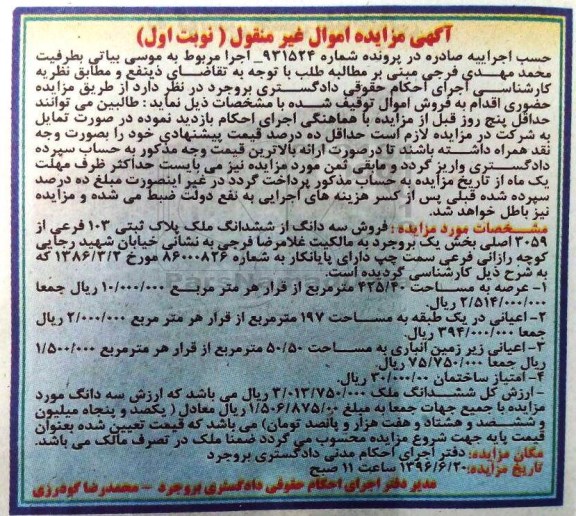 آگهی مزایده اموال غیر منقول ( نوبت اول)
حسب اجراییه صادره در پرونده شماره ۹۳۱۵۲۴_ اجرا مربوط به موسی بیاتی بطرفیت
محمد مهدی فرجی مبنی بر مطالبه طلب با توجه به تقاضای ذینفع و مطابق نظریه
کارشناسی اجرای احکام حقوقی دادگستری بروجرد در نظر دارد از طریق مزایده
حضوری اقدام به فروش اموال توقیف شده با مشخصات ذیل نماید : طالبین می توانند
حداقل پنج روز قبل از مزایده با هماهنگی اجرای احکام بازدید نموده در صورت تمایل
به شرکت در مزایده لازم است حداقل ده درصد قیمت پیشنهادی خود را بصورت وجه
نقد همراه داشته باشند تا درصورت ارائه بالاترین قیمت وجه مذکور به حساب سپرده
دادگستری واریز گردد و مابقی ثمن مورد مزایده نیز می بایست حداکثر ظرف مهلت
یک ماه از تاریخ مزایده به حساب مذکور پرداخت گردد در غیر اینصورت مبلغ ده درصد
سپرده شده قبلی پس از کسر هزینه های اجرایی به نفع دولت ضبط می شده و مزایده
نیز باطل خواهد شد.
مشخصات مورد مزایده : فروش سه دانگ از ششدانگ ملک پلاک ثبتی ۱۰۳ فرعی از
۳۰۵۹ اصلی بخش یک بروجرد به مالکیت غلامرضا فرجی به نشانی خیابان شهید رجایی
کوچه رازانی فرعی سمت چپ دارای پایانکار به شماره ۸۶۰۰۰۸۲۶ مورخ ۱۳۸۶/۳/۲ که
به شرح ذیل کارشناسی گردیده است.
۱- عرصه به مساحت ۴۲۵/۴۰ مترمربع از قرار هر متر مربع ۱۰/۰۰۰/۰۰۰ ریال جمعا
۲/۵۱۴/۰۰۰/۰۰۰ ریال.
۲- اعیانی در یک طبقه به مساحت ۱۹۷ مترمربع از قرار هر متر مربع ۲/۰۰۰/۰۰۰ ریال
جمعا ۳۹۴/۰۰۰/۰۰۰ ریال.
۳- اعیانی زیر زمین انباری به مساحت ۵۰/۵۰ مترمربع از قرار هر مترمربع ۱/۵۰۰/۰۰۰
ریال جمعا ۷۵/۷۵۰/۰۰۰ ریال.
۴- امتیاز ساختمان ۳۰/۰۰۰/۰۰ ریال.
- ارزش کل ششدانگ ملک ۳/۰۱۳/۷۵۰/۰۰۰ ریال می باشد که ارزش سه دانگ مورد
مزایده با جمیع جهات جمعا به مبلغ ۱/۵۰۶/۸۷۵/۰۰ ریال معادل ( یکصد و پنجاه میلیون
و ششصد و هشتاد و هفت هزار و پانصد تومان) می باشد که قیمت تعیین شده بعنوان
قیمت پایه جهت شروع مزایده محسوب می گردد ضمنا ملک در تصرف مالک می باشد.
مکان مزایده: دفتر اجرای احکام مدنی دادگستری بروجرد
تاریخ مزایده: ۱۳۹۶/۶/۲۰ ساعت ۱۱ صبح
مدیر دفتر اجرای احکام حقوقی دادگستری بروجرد - محمدرضا گودرزی